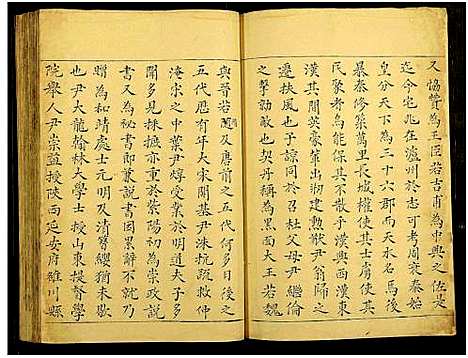 又協贊為王臣若吉甫為中興之佐是
迄今宅兆在瀘州於志可考周衰秦始
皇分天下為三十六郡而天水名馬後
暴秦修築萬里長城權使其士虜使其
民象者為能保其不散乎漢興西漢東
漢其間英豪輩出物建勳猷尹翁歸之
遷扶風也于諒同於召杜父母尹繼倫
之擊勍敵也契丹稱為黑面大王若魏
與晉若隨及唐前之五代何多日後之
五代歷有年大宋開基尹洙抗䟽救仲
淹宋之中業尹焞受業於明道夫子多
聞多見採摭亦重於紫陽初為崇政說
書又為祕書郎兼說書因累辭不受敕
贈為和靖處士元明及清簪纓猶未歇
也尹大龍翰林大學士校山東提督學
院舉人尹崇益授陝西延安府雒川縣